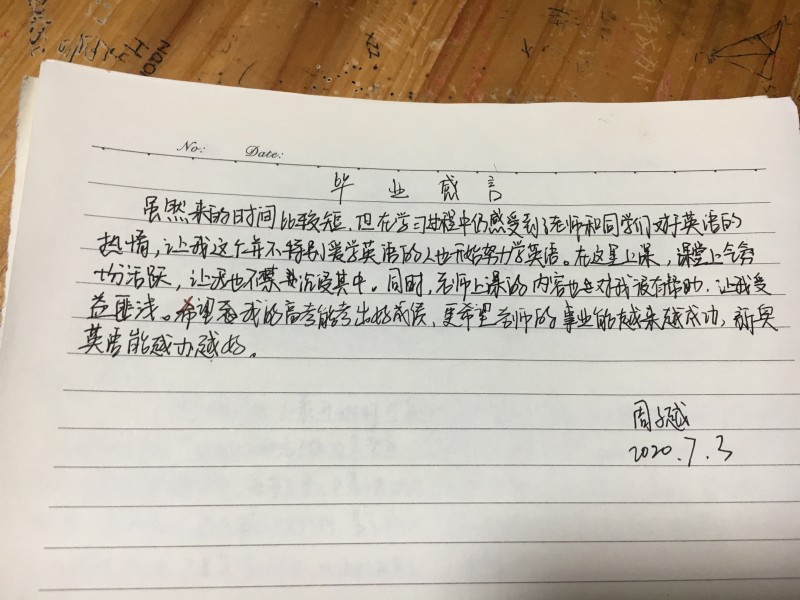 NaOH
H₂
No: Date:
毕业感言
虽然来的时间比较短,但在学习过程中仍感受到了老师和同学们对于英语的
热情,让我这个并不特别爱学英语的人也开始努力学英语。在这里上课,课堂上气氛
十分活跃,让我也不禁沉浸其中。同时,老师上课的内容也是对我很有帮助,让我受
益匪浅。希望我的高考能考出好成绩,更希望老师的事业能越来越成功,新奥
英语能越办越好。
周越
2020.7.3